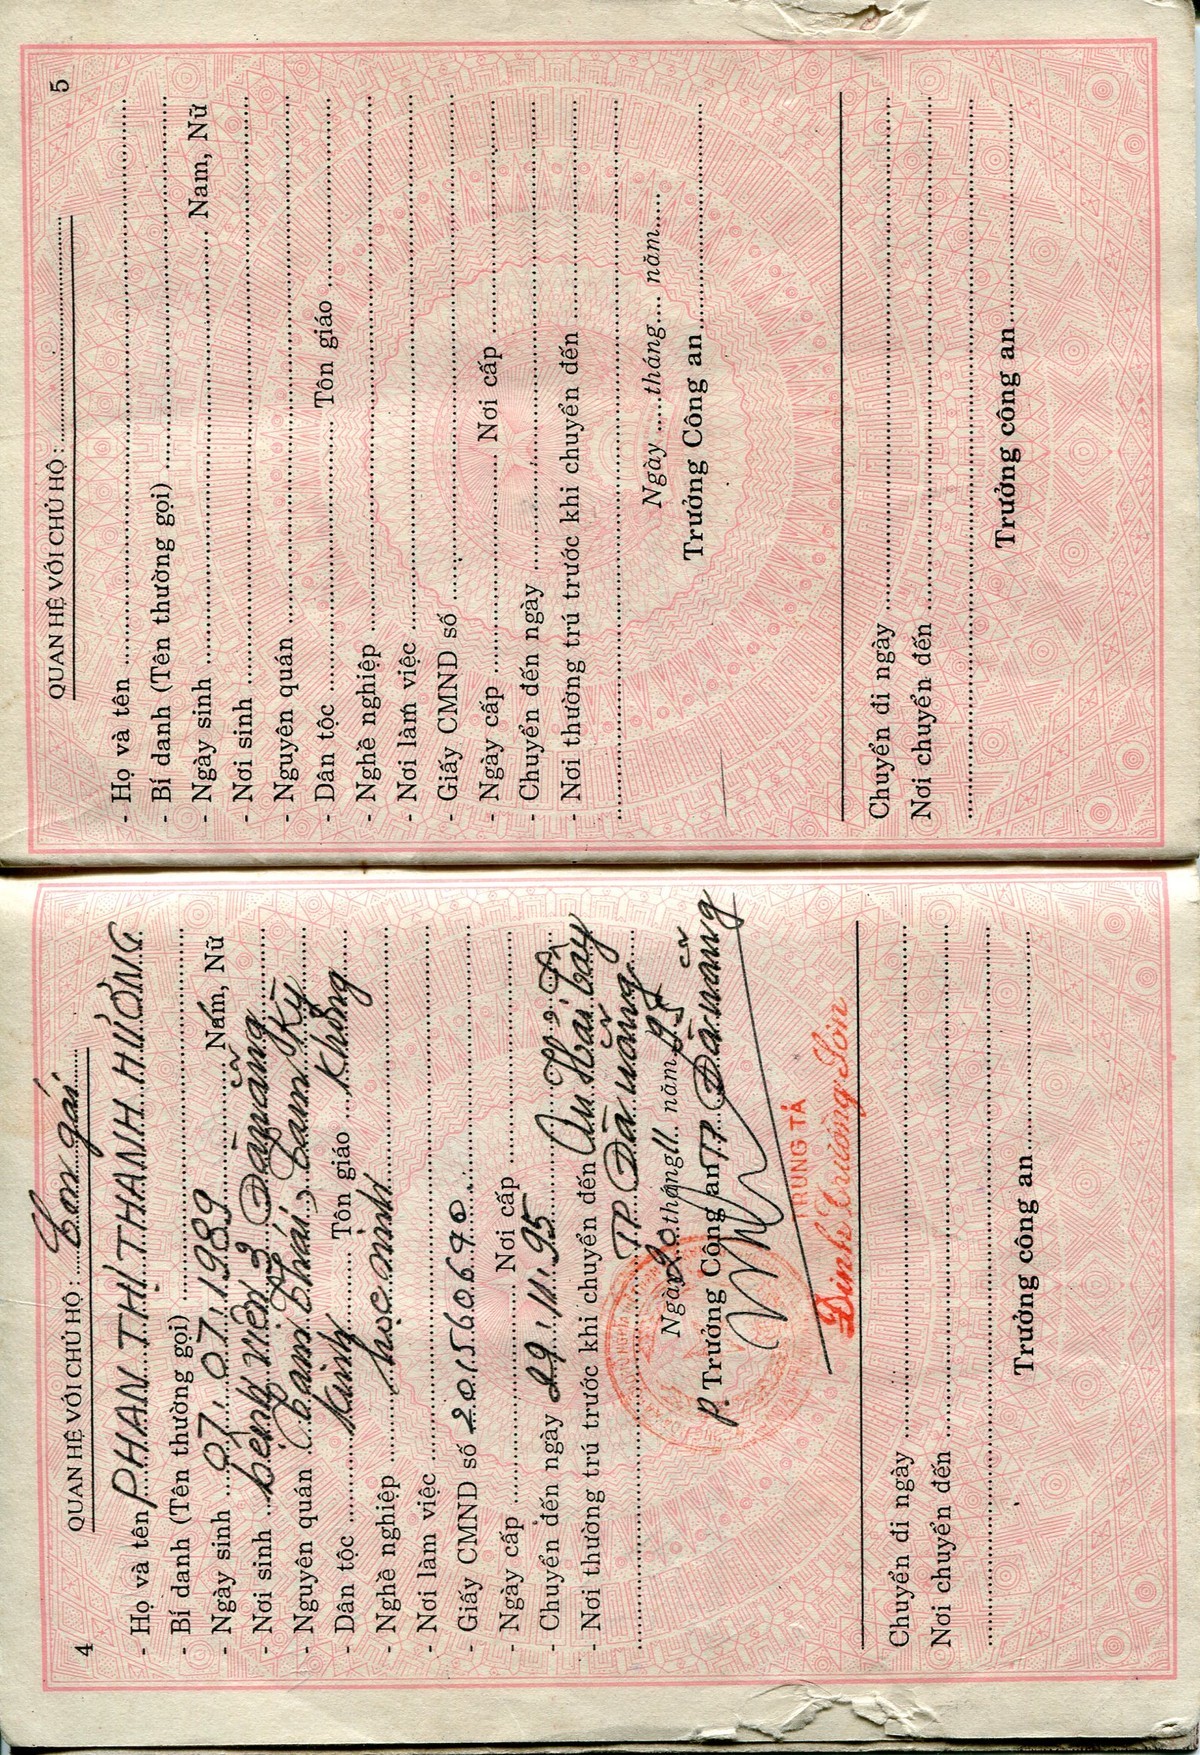 4
QUAN HỆ VỚI CHỦ HỘ : Con gái
- Họ và tên PHAN THỊ THANH HƯƠNG
- Bí danh (Tên thường gọi)
- Ngày sinh 07.07.1989 Nam, Nữ
- Nơi sinh bệnh viện 3 Đà nẵng
- Nguyên quán Tam Thái, Tam Kỳ
- Dân tộc Kinh Tôn giáo Không
- Nghề nghiệp học sinh
- Nơi làm việc
- Giấy CMND số 201560640
- Ngày cấp Nơi cấp
- Chuyển đến ngày 29.11.95
- Nơi thường trú trước khi chuyển đến An Hải Tây
TP Đà nẵng
Ngày 20 tháng 11 năm 95
P. Trưởng Công an TP Đà nẵng
TRUNG TÁ
Đinh Trường Sơn
Chuyển đi ngày
Nơi chuyển đến
Trưởng công an
5
QUAN HỆ VỚI CHỦ HỘ :
- Họ và tên
- Bí danh (Tên thường gọi)
- Ngày sinh Nam, Nữ
- Nơi sinh
- Nguyên quán
- Dân tộc Tôn giáo
- Nghề nghiệp
- Nơi làm việc
- Giấy CMND số
- Ngày cấp Nơi cấp
- Chuyển đến ngày
- Nơi thường trú trước khi chuyển đến
Ngày tháng năm
Trưởng Công an
Chuyển đi ngày
Nơi chuyển đến
Trưởng công an